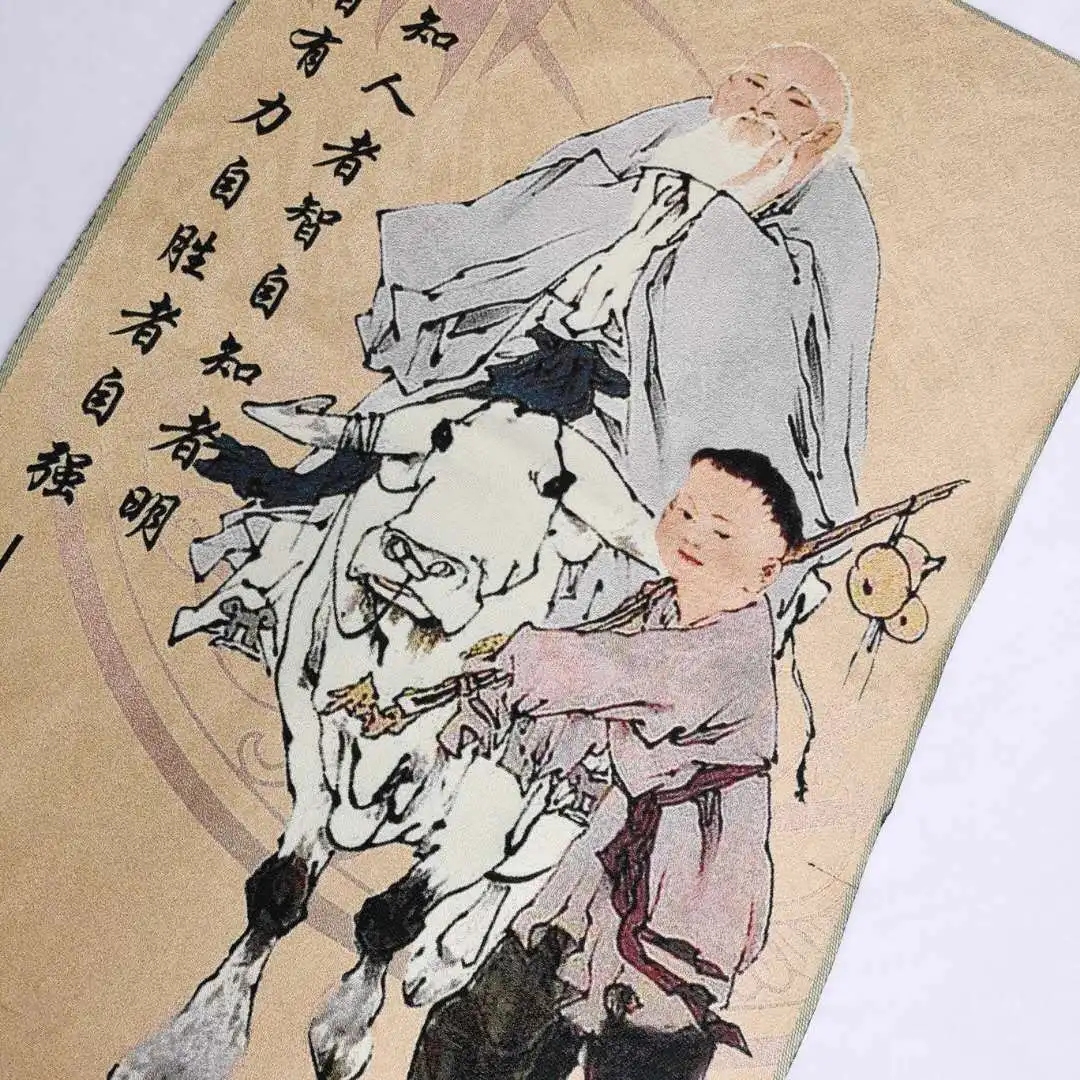 知人者智自知者明
者有力自胜者自强